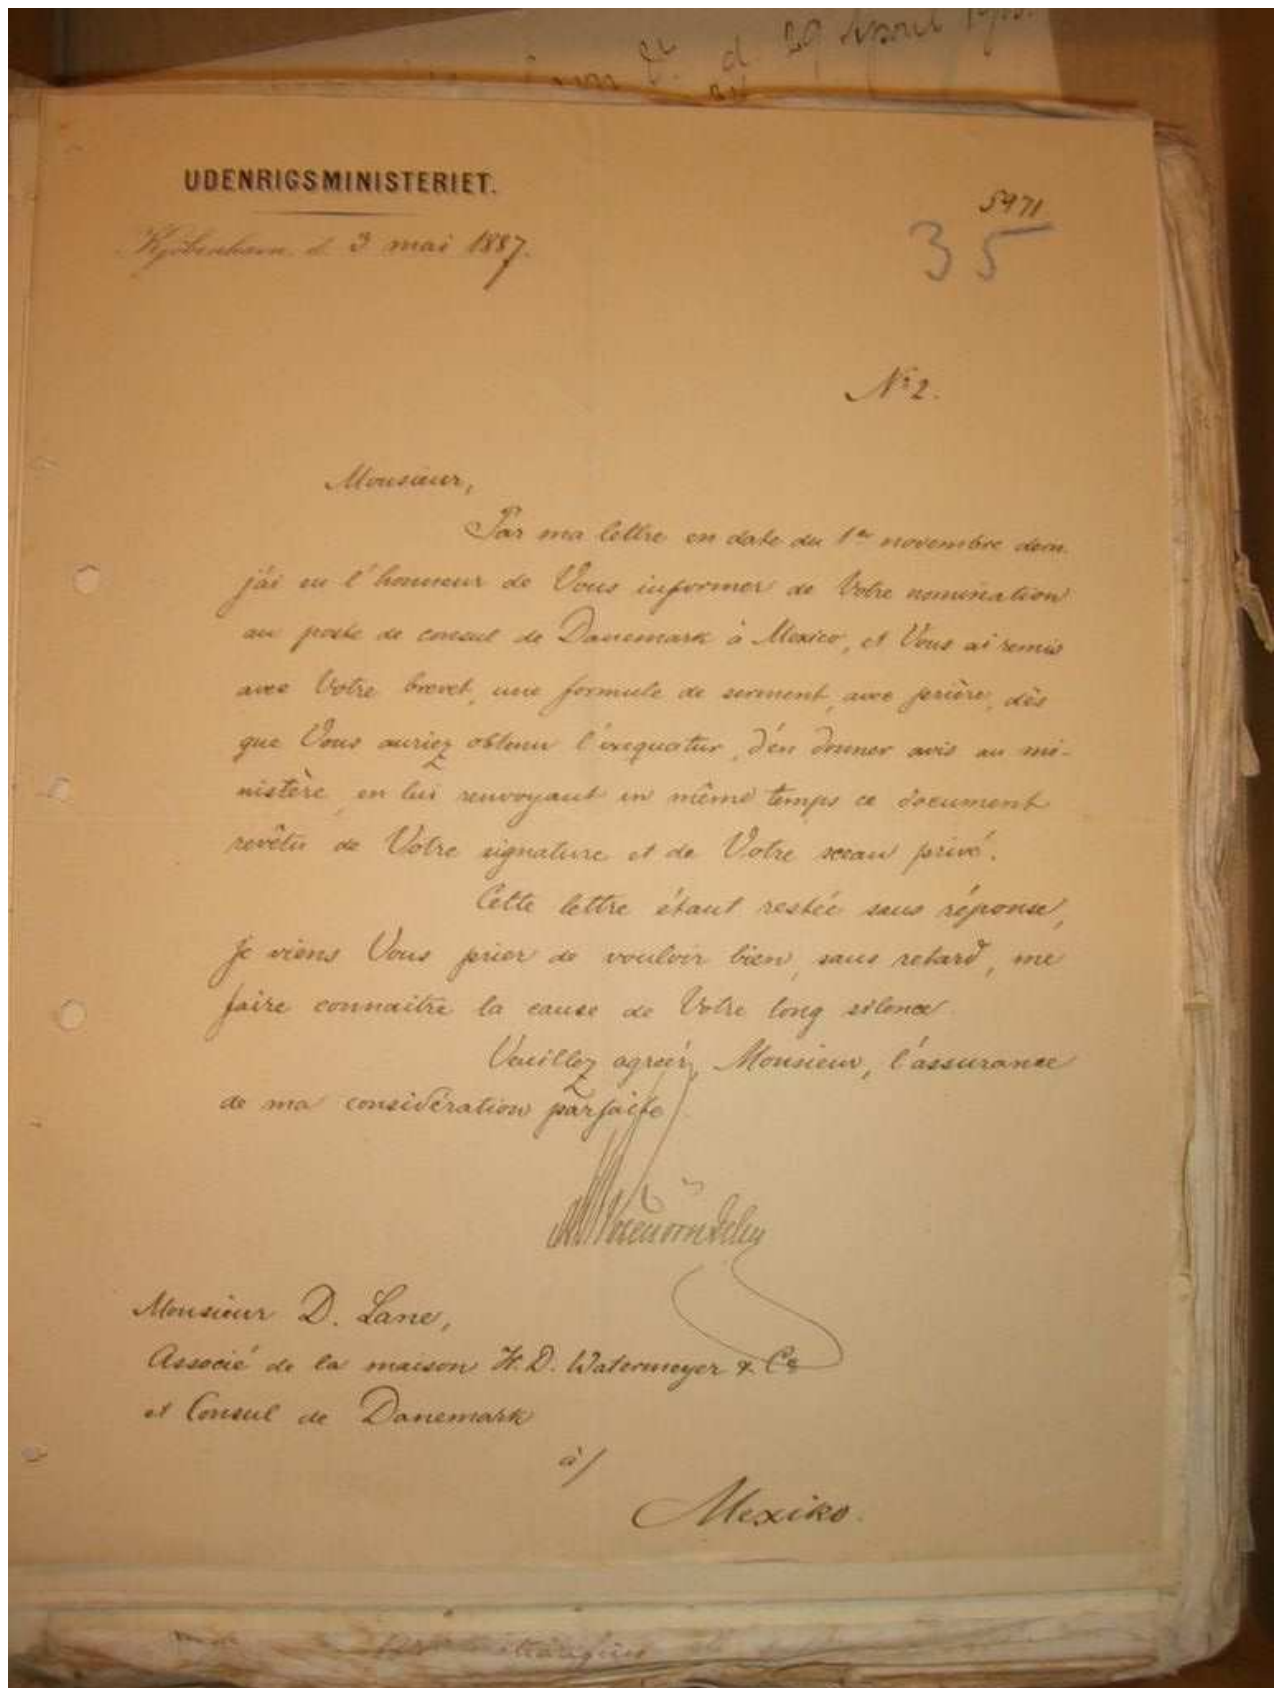 UDENRIGSMINISTERIET.
Kjøbenhavn, d. 3 mai 1887.
5971
35
No 2.
Monsieur,
Par ma lettre en date du 1er novembre dern.
j'ai eu l'honneur de Vous informer de Votre nomination
au poste de consul de Danemark à Mexico, et Vous ai remis
avec Votre brevet, une formule de serment, avec prière, dès
que Vous auriez obtenu l'exequatur, d'en donner avis au mi-
nistère en lui renvoyant en même temps ce document
revêtu de Votre signature et de Votre sceau privé.
Cette lettre étant restée sans réponse,
je viens Vous prier de vouloir bien, sans retard, me
faire connaître la cause de Votre long silence.
Veuillez agréer, Monsieur, l'assurance
de ma considération parfaite
Monsieur D. Lane,
Associé de la maison H. D. Watermeyer & Co
et Consul de Danemark
à
Mexiko.